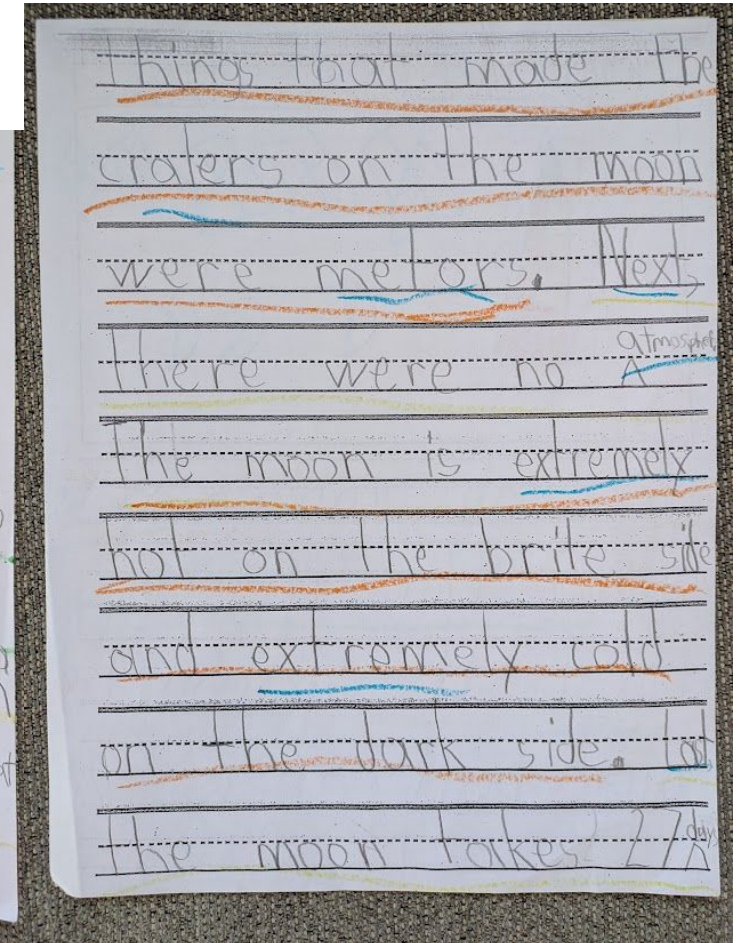 Things that made the
craters on the moon
were metors. Next,
atmospher
There were no ^
The moon is extremely
hot on the brite side
and extremely cold
on the dark side. Last,
days
The moon takes 27^